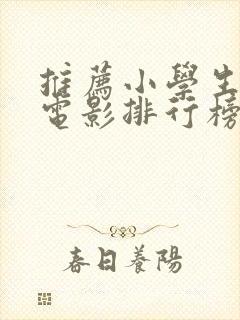 推薦小學生
電影排行榜
春日養陽